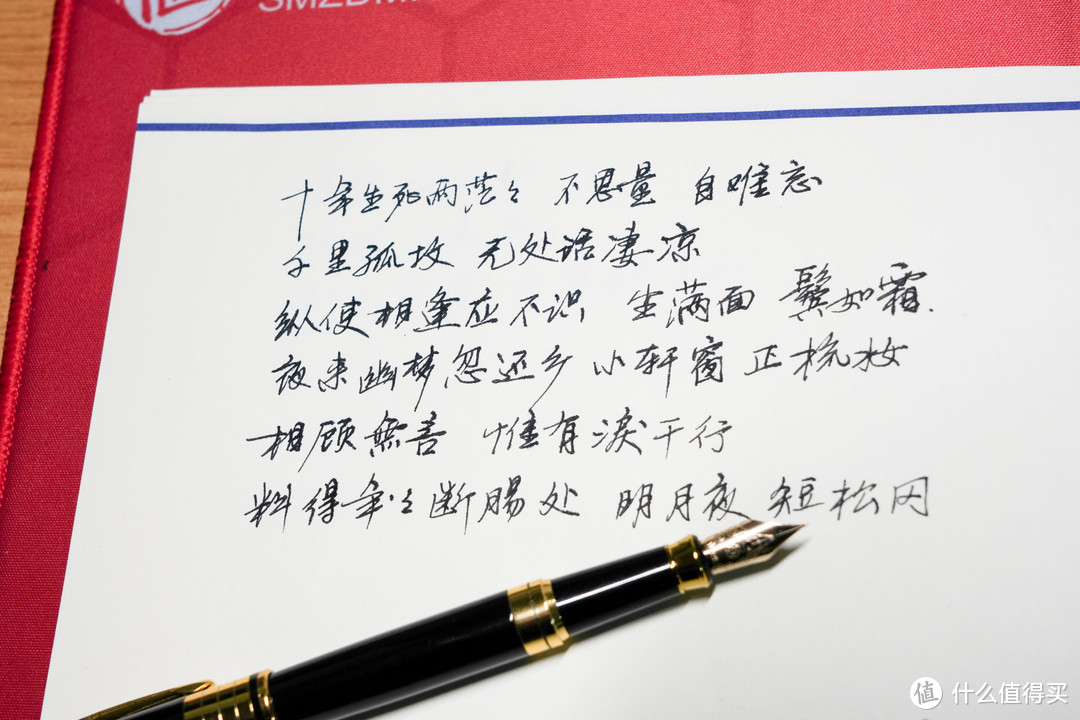 值 SMZDM
十年生死两茫々 不思量 自难忘
千里孤坟 无处话凄凉
纵使相逢应不识 尘满面 鬓如霜.
夜来幽梦忽还乡 小轩窗 正梳妆
相顾無言 惟有淚千行
料得年々断腸处 明月夜 短松冈
值 什么值得买